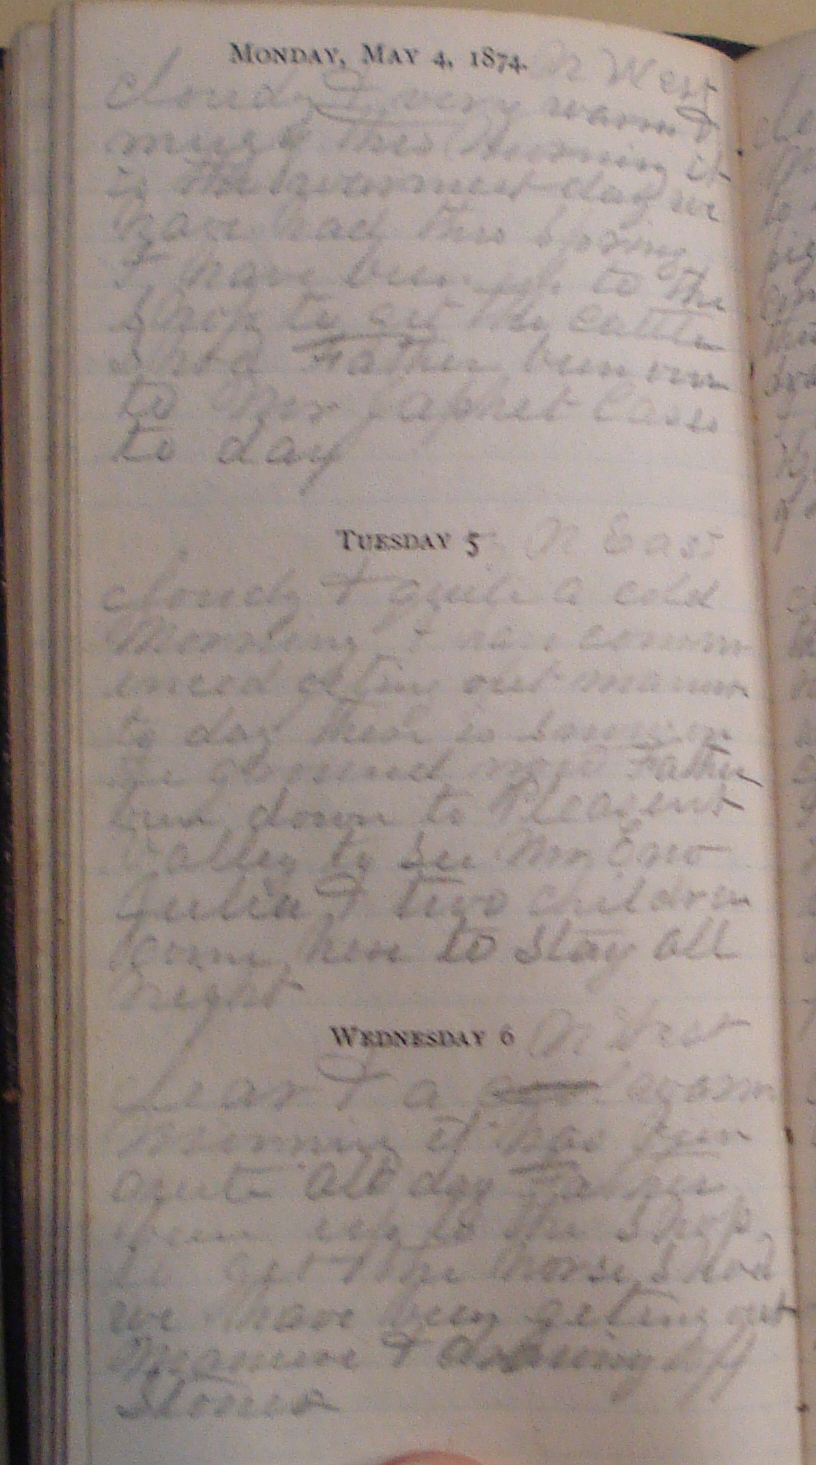 MONDAY, MAY 4, 1874. N West
cloudy & very warm &
mugg this Morning it
is the warmest day we
have had this spring
I have been up to the
Shop to get the cattle
Shod Father been over
to Mr Japhet Cases
to day
TUESDAY 5 N East
cloudy & quite a cold
Morning I have comm
enced geting out manure
to day there is snow on
the ground now Father
been down to Pleasent
Valley to see Mr Eno
Julia & two children
come here to stay all
night
WEDNESDAY 6 N West
clear & a warm
Morning it has been
quite all day Father
been up to the Shop
to get the horse shod
we have been geting out
Manure & drawing off
Stones